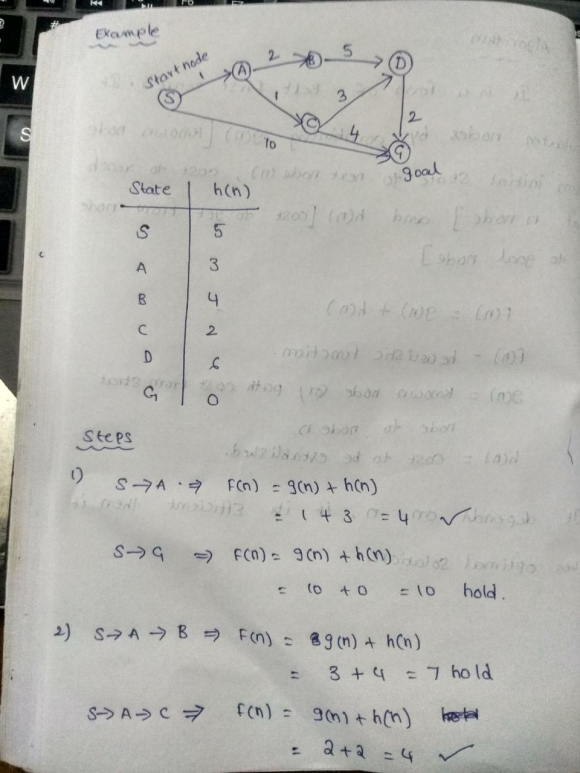 Example
Start node
S 1 A 2 B 5 D
1 C 3 2
10 4 G
goal
State h(n)
S 5
A 3
B 4
C 2
D 6
G 0
Steps
1) S→A ⇒ F(n) = g(n) + h(n)
= 1 + 3 = 4 ✓
S→G ⇒ F(n) = g(n) + h(n)
= 10 + 0 = 10 hold.
2) S→A→B ⇒ F(n) = g(n) + h(n)
= 3 + 4 = 7 hold
S→A→C ⇒ F(n) = g(n) + h(n)
= 2 + 2 = 4 ✓
W
S